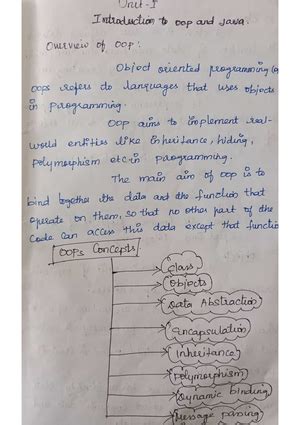 Unit-I
Introduction to oop and java.
Overview of OOP:
Object oriented programming (or
oops refers to languages that uses objects
in programming.
OOP aims to implement real-
world entities like Inheritance, hiding,
polymorphism etc in programming.
The main aim of oop is to
bind together the data and the function that
operate on them, so that no other part of the
code can access this data except that function
OOPs Concepts
Class
Objects
Data Abstraction
Encapsulation
Inheritance
Polymorphism
Dynamic binding
Message passing